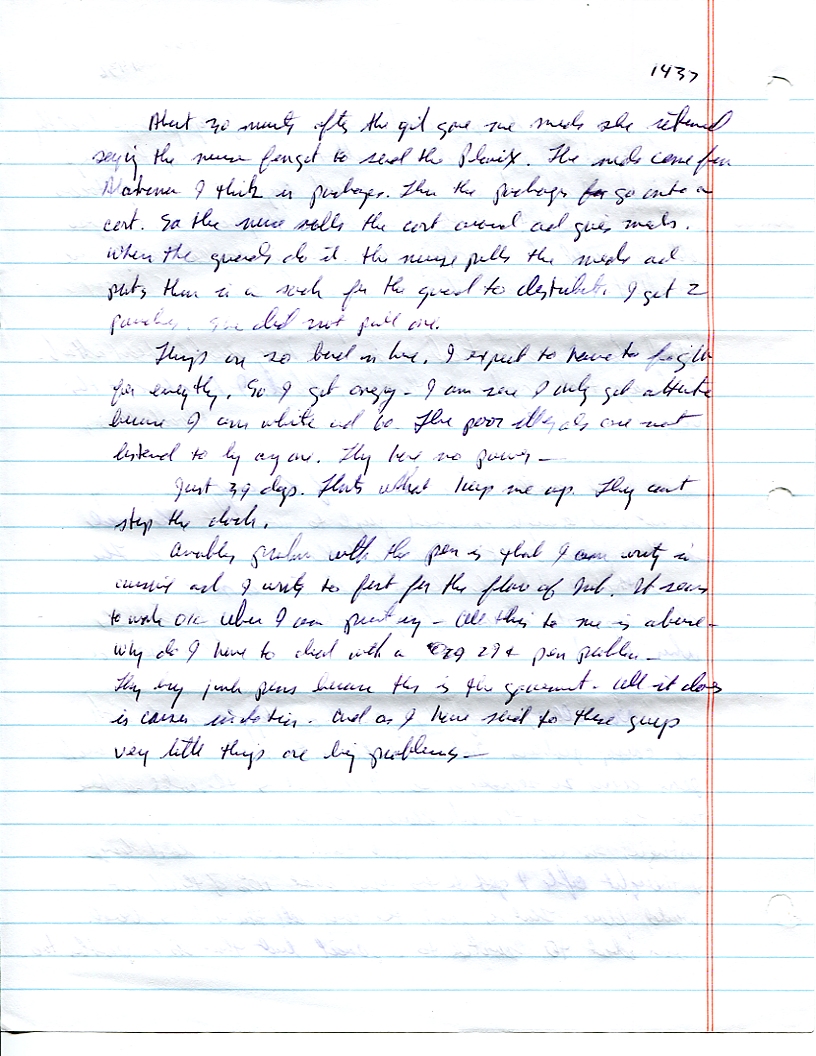 1437
About 30 minutes after the girl gave me meds she returned
saying the nurse forgot to send the Plavix. The meds come from
I think in packages. Then the packages go onto a
cart. So the nurse rolls the cart around and gives meds.
When the guards do it the nurse pulls the meds and
puts them in a sack for the guard to distribute. I get 2
She did not pull one.
Things are so bad in here, I expect to have to fight
for everything. So I get angry - I am sure I only get attention
because I am white and The poor illegals are not
listened to by anyone. They have no power -
Just 39 days. That's what keeps me up. They can't
stop the clock.
Another problem with the pen is that I am writing in
cursive and I write to fast for the flow of ink. It seems
to work OK when I am printing - All this to me is abuse -
why do I have to deal with a 29¢ pen problem -
They buy junk pens because this is the government. All it does
is causes irritation. And as I have said to these guys
very little things are big problems -